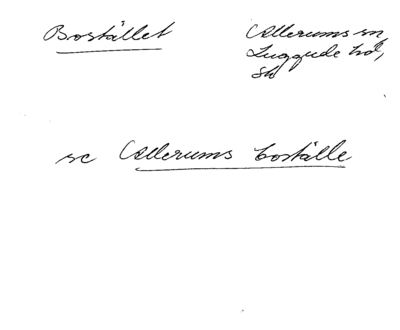 Bostället
Allerums sn,
Luggude hd,
Sk
se Allerums boställe